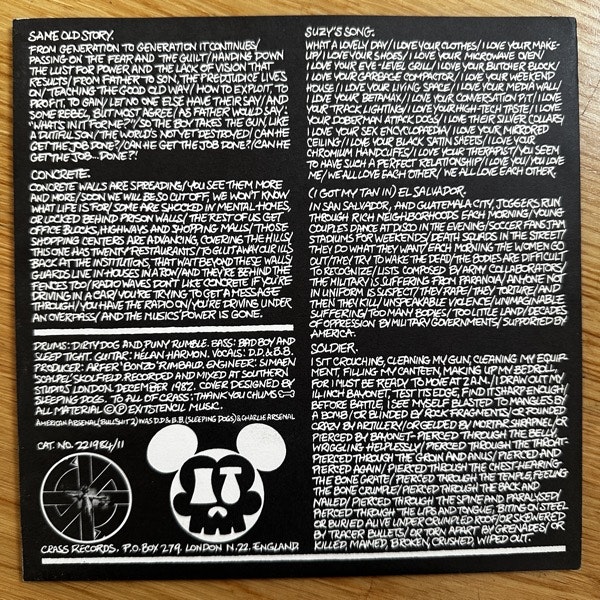 SAME OLD STORY.
FROM GENERATION TO GENERATION IT CONTINUES/
PASSING ON THE FEAR AND THE GUILT/HANDING DOWN
THE LUST FOR POWER AND THE LACK OF VISION THAT
RESULTS/FROM FATHER TO SON, THE PREDJUDICE LIVES
ON/TEACHING THE GOOD OLD WAY/HOW TO EXPLOIT, TO
PROFIT, TO GAIN/LET NO ONE ELSE HAVE THEIR SAY/AND
SOME REBEL, BUT MOST AGREE/AS FATHER WOULD SAY:
"WHATS IN IT FOR ME?"/SO THE BOY TAKES THE GUN, LIKE
A DUTIFUL SON/THE WORLD'S NOT YET DESTROYED/CAN HE
GET THE JOB DONE?/CAN HE GET THE JOB DONE?/CAN HE
GET THE JOB...DONE?!
CONCRETE.
CONCRETE WALLS ARE SPREADING/YOU SEE THEM MORE
AND MORE/SOON WE WILL BE SO CUT OFF, WE WON'T KNOW
WHAT LIFE IS FOR/SOME ARE SHOCKED IN MENTAL HOMES,
OR LOCKED BEHIND PRISON WALLS/THE REST OF US GET
OFFICE BLOCKS, HIGHWAYS AND SHOPPING MALLS/THOSE
SHOPPING CENTERS ARE ADVANCING, COVERING THE HILL/
THIS ONE HAS TWENTY RESTAURANTS/TO GLUT AWAY OUR ILLS
BACK AT THE INSTITUTIONS, THAT WAIT BEYOND THESE WALLS
GUARDS LIVE IN HOUSES IN A ROW/AND THEY'RE BEHIND THE
FENCES TOO/RADIO WAVES DON'T LIKE CONCRETE IF YOU'RE
DRIVING IN A CAR/YOU'RE TRYING TO GET A MESSAGE
THROUGH/YOU HAVE THE RADIO ON/YOU'RE DRIVING UNDER
AN OVERPASS/AND THE MUSICS' POWER IS GONE.
DRUMS: DIRTY DOG AND PUNY RUMBLE. BASS: BAD BOY AND
SLEEP TIGHT. GUITAR: HELAN HARMON. VOCALS: D.D.& B.B.
PRODUCER: ARFER 'BONZO' RIMBAUD. ENGINEER: SIMAEN
SKOLFIELD. RECORDED AND MIXED AT SOUTHERN
STUDIOS LONDON. DECEMBER 1982. COVER DESIGNED BY
SLEEPING DOGS. TO ALL OF CRASS: THANK YOU CHUMS
ALL MATERIAL © ℗ EXITSTENCIL MUSIC.
AMERICAN ARSENAL (BULLSHIT 2) WAS D.D.& B.B. (SLEEPING DOGS) & CHARLIE ARSENAL
CAT. NO. 221984/11
CRASS RECORDS. P.O. BOX 279. LONDON N.22. ENGLAND.
SUZY'S SONG.
WHAT A LOVELY DAY/I LOVE YOUR CLOTHES/I LOVE YOUR MAKE-
UP/I LOVE YOUR SHOES/I LOVE YOUR MICROWAVE OVEN/
I LOVE YOUR EYE-LEVEL GRILL/I LOVE YOUR BUTCHER BLOCK/
I LOVE YOUR GARBAGE COMPACTOR/I LOVE YOUR WEEKEND
HOUSE/I LOVE YOUR LIVING SPACE/I LOVE YOUR MEDIA WALL/
I LOVE YOUR BETAMAX/I LOVE YOUR CONVERSATION PIT/I LOVE
YOUR TRACK LIGHTING/I LOVE YOUR HIGH-TECH TASTE/I LOVE
YOUR DOBERMAN ATTACK DOGS/I LOVE THEIR SILVER COLLARS/
I LOVE YOUR SEX ENCYCLOPAEDIA/I LOVE YOUR MIRRORED
CEILING/I LOVE YOUR BLACK SATIN SHEETS/I LOVE YOUR
CHROMIUM HANDCUFFS/I LOVE YOUR THERAPIST/YOU SEEM
TO HAVE SUCH A PERFECT RELATIONSHIP/I LOVE YOU/YOU LOVE
ME/WE ALL LOVE EACH OTHER/WE ALL LOVE EACH OTHER.
(I GOT MY TAN IN) EL SALVADOR.
IN SAN SALVADOR, AND GUATEMALA CITY, JOGGERS RUN
THROUGH RICH NEIGHBORHOODS EACH MORNING/YOUNG
COUPLES DANCE AT DISCO IN THE EVENING/SOCCER FANS JAM
STADIUMS FOR WEEKENDS/DEATH SQUADS IN THE STREET/
THEY DO WHAT THEY WANT/EACH MORNING THE WOMEN GO
OUT/THEY TRY TO WAKE THE DEAD/THE BODIES ARE DIFFICULT
TO RECOGNIZE/LISTS COMPOSED BY ARMY COLLABORATORS/
THE MILITARY IS SUFFERING FROM PARANOIA/ANYONE NOT
IN UNIFORM IS SUSPECT/THEY RAPE/THEY TORTURE/AND
THEN THEY KILL/UNSPEAKABLE VIOLENCE/UNIMAGINABLE
SUFFERING/TOO MANY BODIES/TOO LITTLE LAND/DECADES
OF OPPRESSION BY MILITARY GOVERNMENTS/SUPPORTED BY
AMERICA.
SOLDIER.
I SIT CROUCHING, CLEANING MY GUN, CLEANING MY EQUIP-
MENT, FILLING MY CANTEEN, MAKING UP MY BEDROLL,
FOR I MUST BE READY TO MOVE AT 2 A.M./I DRAW OUT MY
14 INCH BAYONET, TEST ITS EDGE, FIND IT SHARP ENOUGH/
BEFORE BATTLE, I SEE MYSELF BLASTED TO MANGLES BY
A BOMB/OR BLINDED BY ROCK FRAGMENTS/OR ROUNDED
CRAZY BY ARTILLERY/OR GELDED BY MORTAR SHRAPNEL/OR
PIERCED BY BAYONET-PIERCED THROUGH THE BELLY,
WRIGGLING HELPLESSLY/PIERCED THROUGH THE THROAT-
PIERCED THROUGH THE GROIN AND ANUS/PIERCED AND
PIERCED AGAIN/PIERCED THROUGH THE CHEST-HEARING
THE BONE GRATE/PIERCED THROUGH THE TEMPLE, FEELING
THE BONE CRUMPLE/PIERCED THROUGH THE BACK AND
NAILED/PIERCED THROUGH THE SPINE AND PARALYSED/
PIERCED THROUGH THE LIPS AND TONGUE, BITING ON STEEL
OR BURIED ALIVE UNDER CRUMPLED ROOF/OR SKEWERED
BY TRACER BULLETS/OR TORN APART BY GRENADES/OR
KILLED, MAIMED, BROKEN, CRUSHED, WIPED OUT.